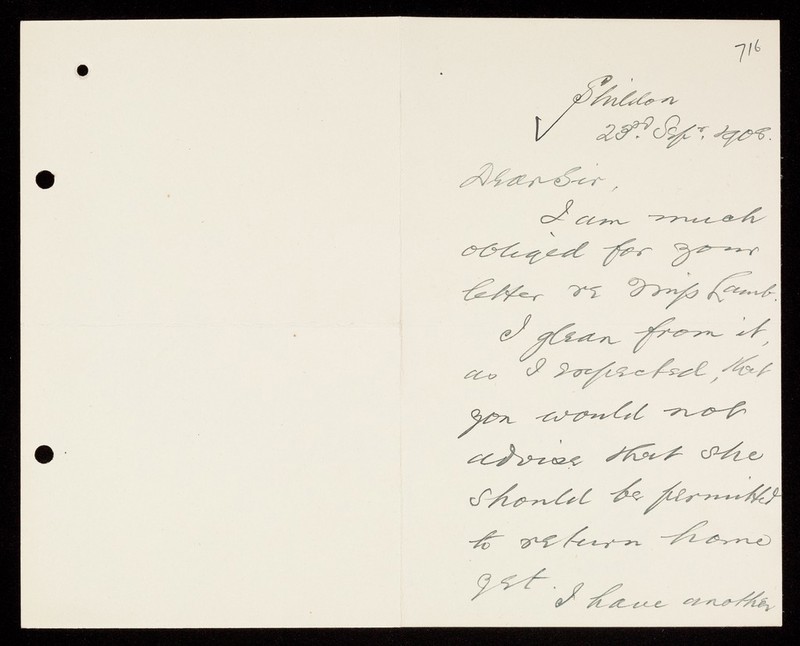 716
Shildon
23rd. Sepr. 1908.
Dear Sir,
I am much
obliged for your
letter re Miss Lamb.
I glean from it,
as I expected, that
you would not
advise that she
should be permitted
to return home
yet.
I have another